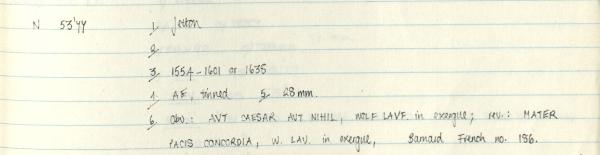 N 53'44 1. Jetton
2.
3. 1554-1601 or 1635
4. AE, tinned 5. 28 mm.
6. obv.: AVT CAESAR AVT NIHIL, WOLF LAVF. in exergue; rev.: MATER
PACIS CONCORDIA, W. LAV. in exergue, Barnard French no. 186.